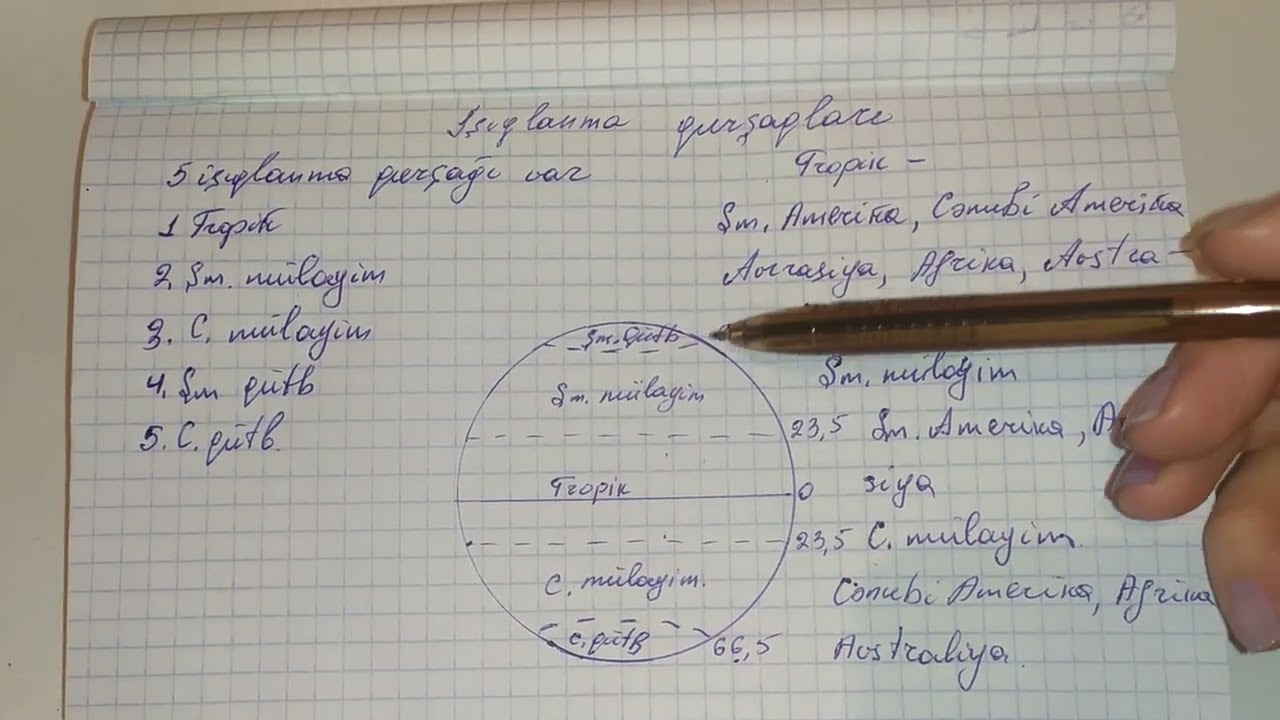 İşıqlanma qurşaqları
5 işıqlanma qurşağı var
1 Tropik
2 Şm. mülayim
3. C. mülayim
4. Şm qütb
5. C. qütb.
Tropik –
Şm. Amerika, Cənubi Amerika
Avrasiya, Afrika, Avstra –
Şm. mülayim
Şm. Amerika,
siya
C. mülayim.
Cənubi Amerika, Afrika
Avstraliya.
Şm. qütb
Şm. mülayim
23,5
Tropik
0
23,5
C. mülayim.
C. qütb
66,5